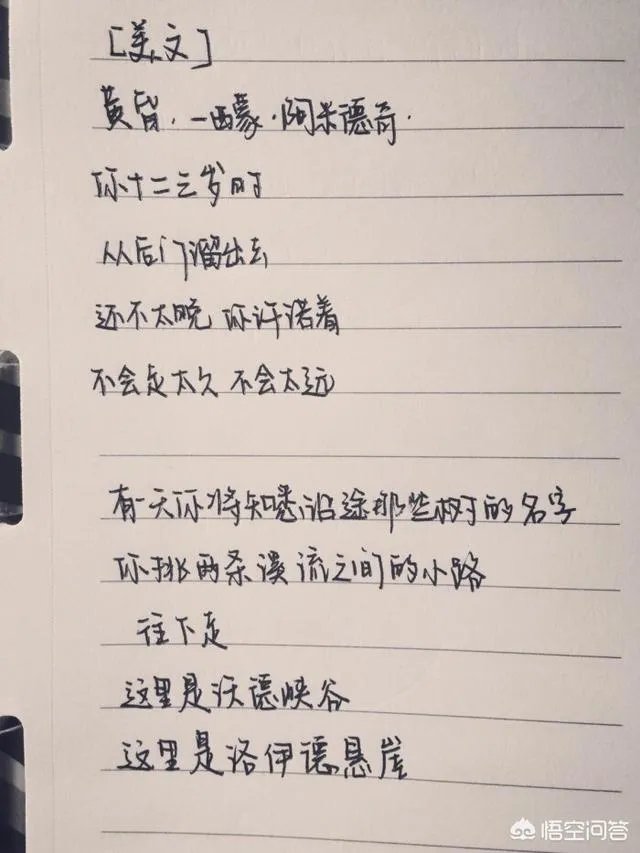 [美文]
黄昏·一西蒙·阿米德奇·
你十二三岁时
从后门溜出去
还不太晚 你许诺着
不会走太久 不会太远
有一天你将知悉沿途那些树的名字
你挑两条溪流之间的小路
往下走
这里是沃德峡谷
这里是洛伊德悬崖
悟空问答